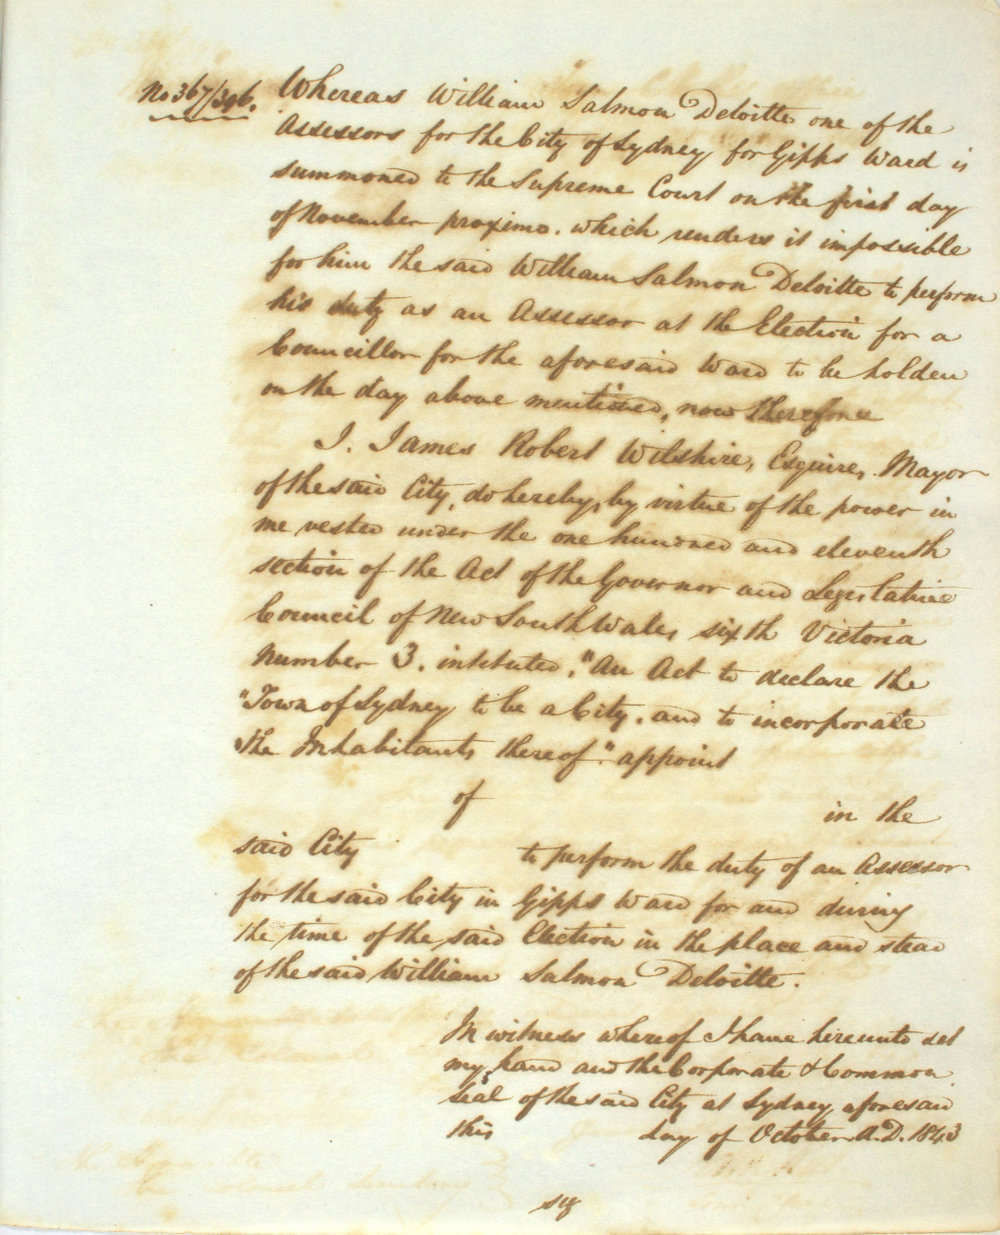 No 367/396. Whereas William Salmon Deloitte one of the
Assessors for the City of Sydney for Gipps Ward is
summoned to the Supreme Court on the first day
of November proximo. which renders it impossible
for him the said William Salmon Deloitte to perform
his duty as an Assessor at the Election for a
Councillor for the aforesaid Ward to be holden
on the day above mentioned, now therefore
I. James Robert Wilshire, Esquire, Mayor
of the said City, do hereby, by virtue of the power in
me vested under the one hundred and eleventh
section of the Act of the Governor and Legislative
Council of New South Wales sixth Victoria
Number 3. intituted, "An Act to declare the
"Town of Sydney to be a City. and to incorporate
the Inhabitants thereof" appoint
of in the
said City to perform the duty of an Assessor
for the said City in Gipps Ward for and during
the time of the said Election in the place and stead
of the said William Salmon Deloitte.
In witness whereof I have hereunto set
my hand and the Corporate & Common
Seal of the said City at Sydney aforesaid
this day of October A.D. 1843